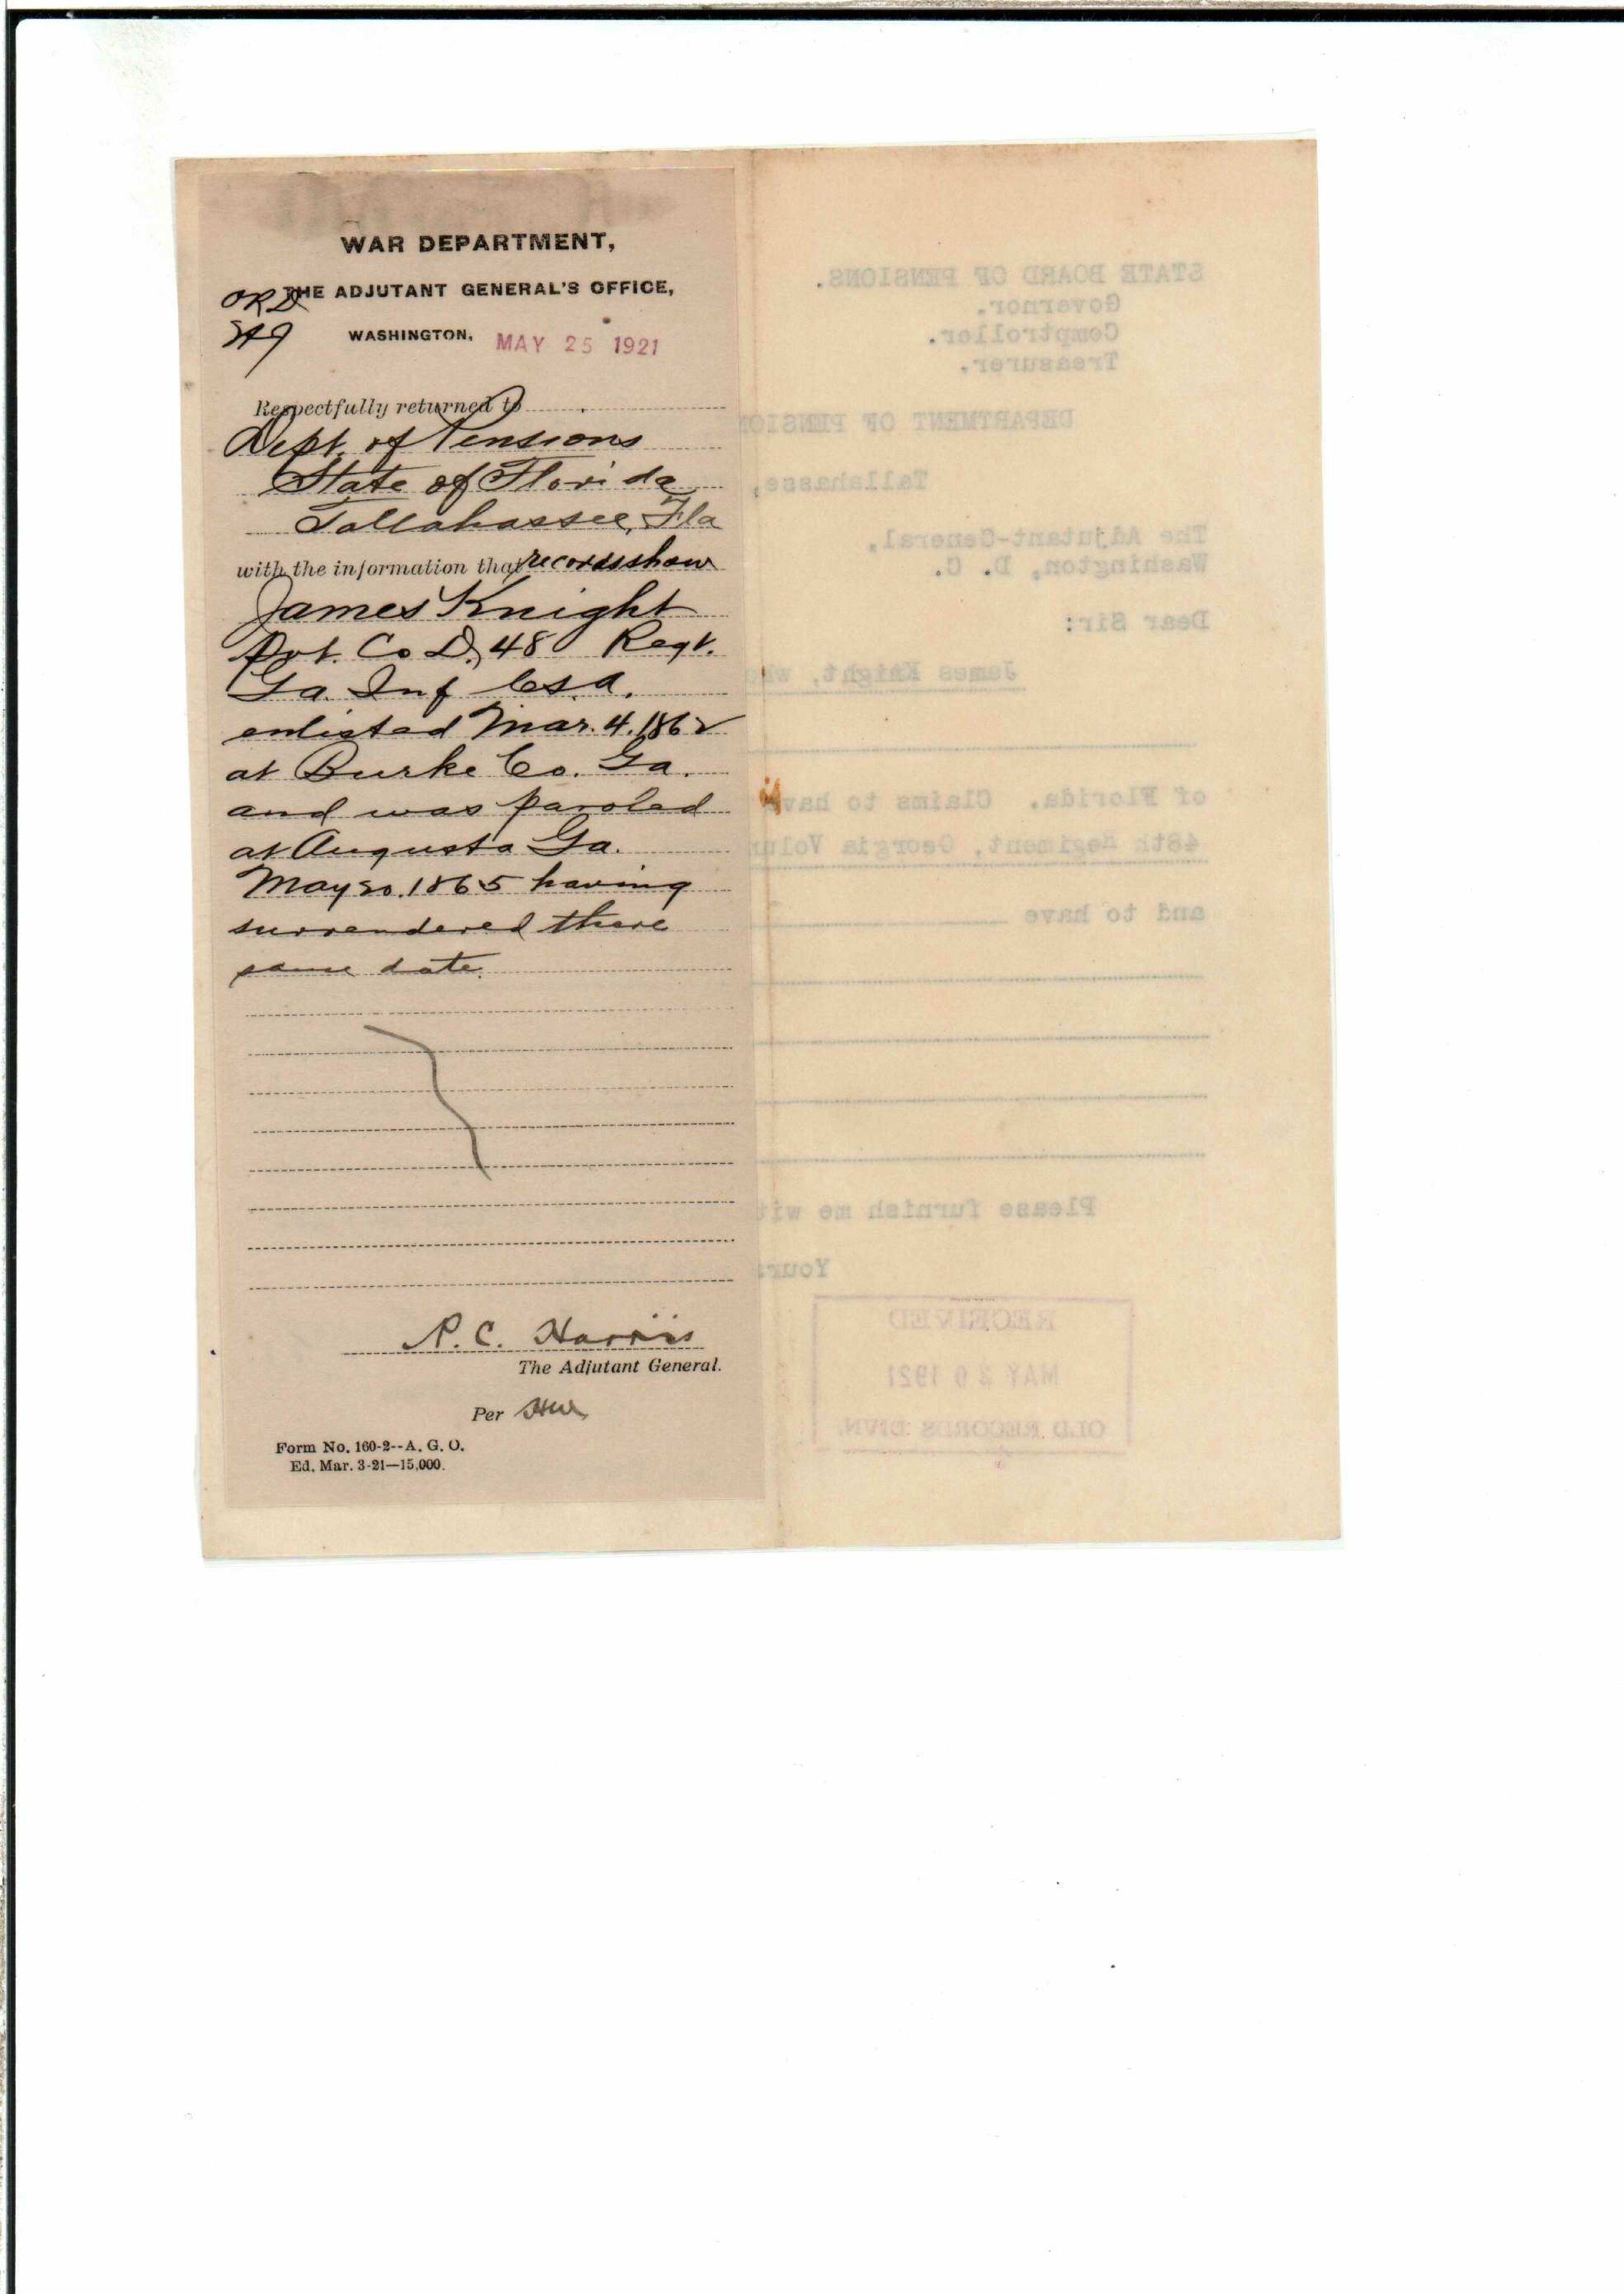 WAR DEPARTMENT,
THE ADJUTANT GENERAL'S OFFICE,
ORD
WASHINGTON, MAY 25 1921
Respectfully returned to
Dept. of Pensions
State of Florida
Tallahassee, Fla
with the information that records show
James Knight
Pvt. Co D, 48 Regt.
Ga. Inf C.S.A.
enlisted Mar. 4. 1862
at Burke Co. Ga.
and was paroled
at Augusta Ga.
May 20. 1865 having
surrendered there
same date.
P. C. Harris
The Adjutant General.
Per
Form No. 160-2--A. G. O.
Ed. Mar. 3-21—15,000.
STATE BOARD OF PENSIONS.
Governor.
Comptroller.
Treasurer.
DEPARTMENT OF PENSION
Tallahassee,
The Adjutant-General,
Washington, D. C.
Dear Sir:
James Knight, who
of Florida. Claims to have
48th Regiment, Georgia Volun
and to have
Please furnish me wit
Yours
RECEIVED
MAY 20 1921
OLD RECORDS DIVN.